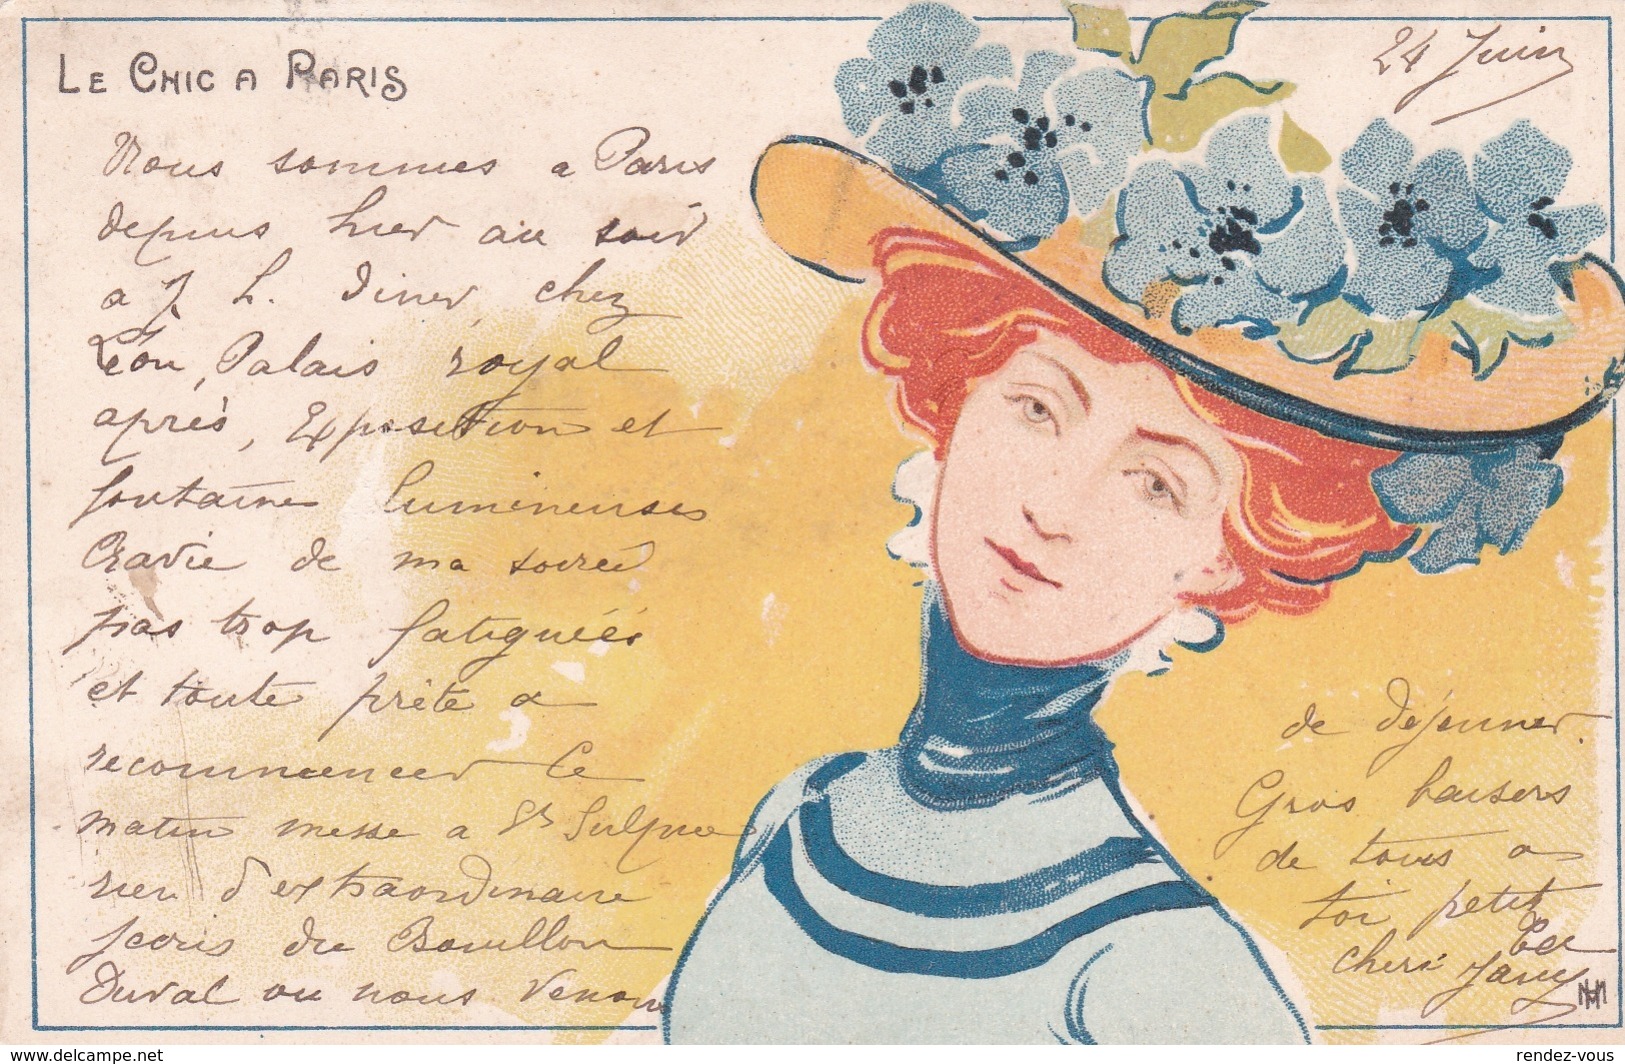 LE CHIC A PARIS
24 Juin
Nous sommes a Paris
depuis hier au soir
a 7 h. Diner chez
Léon, Palais royal
après, Exposition et
fontaines lumineuses
Ravie de ma soirée
pas trop fatiguées
et toute prête a
recommencer Ce
matin messe a St Sulpice
rien d'extraordinaire
j'ecris du Bouillon
Duval ou nous venons
de déjeuner.
Gros baisers
de tous a
toi petit
cheri
MHM
www.delcampe.net
rendez-vous